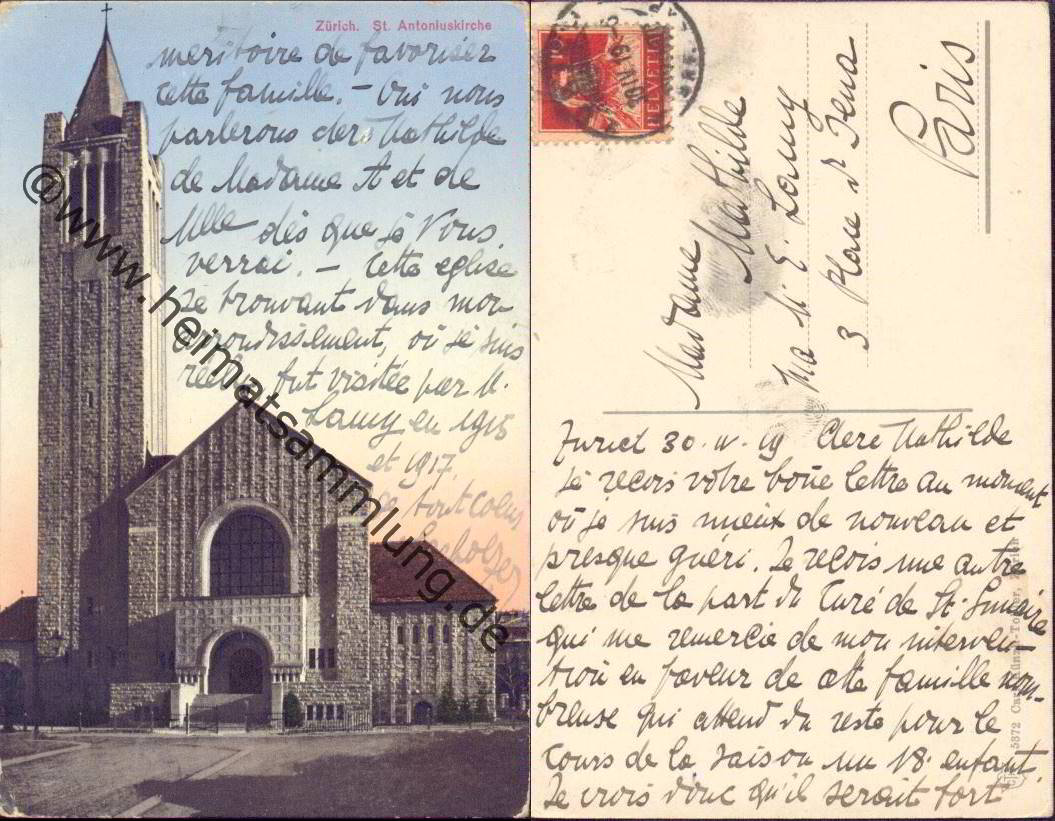 Zürich. St. Antoniuskirche
méritoire de favoriser
cette famille. – Oui nous
parlerons der Mathilde
de Madame A et de
Mlle dès que je Vous
verrai. – Cette eglise
se trouvant dans mon
arrondissement, où je suis
fut visitée par M.
Lamy en 1915
et 1917.
de tout coeur
@www.heimatsammlung.de
HELVETIA
Madame Mathilde
E. Lamy
3 Place d'Jena
Paris
Zurich 30. IV. 19 Chere Mathilde
Je reçois votre bonne lettre au moment
où je suis mieux de nouveau et
presque guéri. Je reçois une autre
lettre de la part du Curé de St.
qui me remercie de mon interven-
tion en faveur de cette famille nom-
breuse qui attend du reste pour le
cours de la saison un 18. enfant.
Je crois donc qu'il serait fort
5872 Zürich